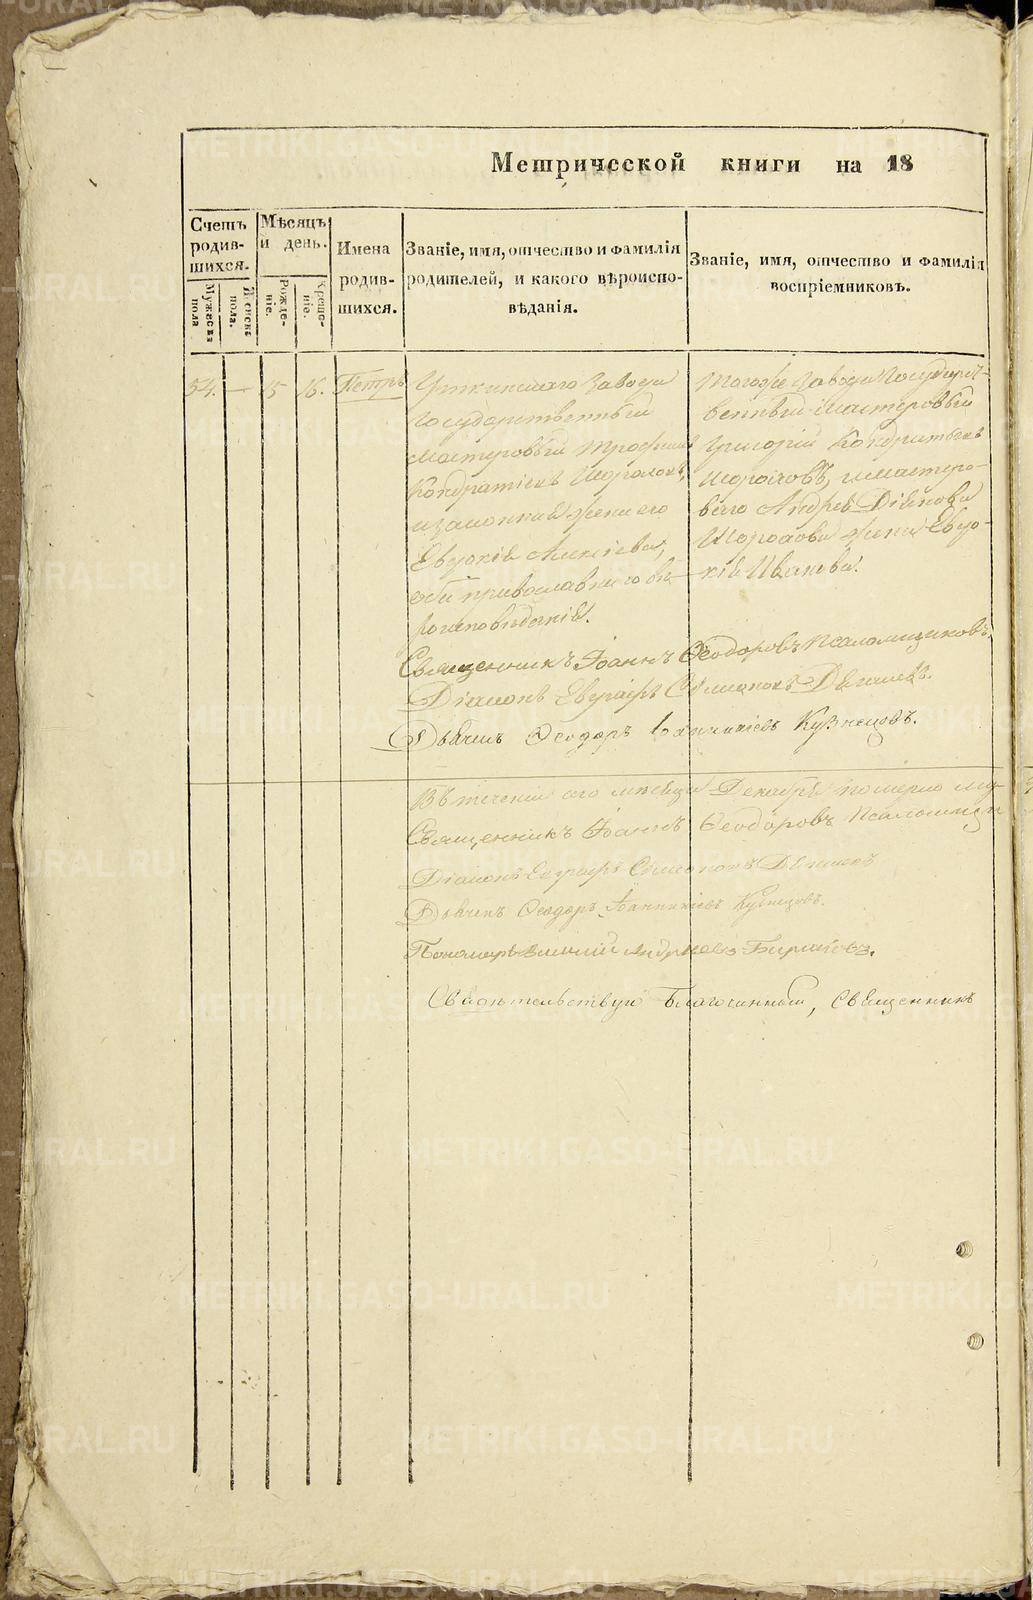 Метрической книги на 18
Счетъ родив- шихся.
Мужеска пола
Женска пола.
Мѣсяцъ и день.
Рожде- ніе.
Креще- ніе.
Имена родив- шихся.
Званіе, имя, отчество и фамилія
родителей, и какого вѣроиспо-
вѣданія.
Званіе, имя, отчество и фамилія
воспріемниковъ.
54. — 15 16. Петръ
Уткинскаго Завода
Государственный
мастеровый Трофимъ
Кондратіевъ
и законная жена его
Евдокія Алексіева,
оба православнаго вѣ-
роисповѣданія.
Тогоже Завода Государст-
венный мастеровый
Григорій Кондратьевъ
и мастеро-
ваго Андрея
жена Евдо-
кія Иванова.
Священникъ Іоаннъ Ѳеодоровъ Псаломщиковъ.
Діаконъ Евграфъ Симеоновъ
Дьячекъ Ѳеодоръ Іоанникіевъ Кузнецовъ.
Въ теченіи сего мѣсяца Декабря
Священникъ Іоаннъ Ѳеодоровъ
Діаконъ Евграфъ Симеоновъ
Дьячекъ Ѳеодоръ Іоанникіевъ Кузнецовъ.
Пономарь Василій Андреевъ
Свидѣтельствую Благочинный, Священникъ